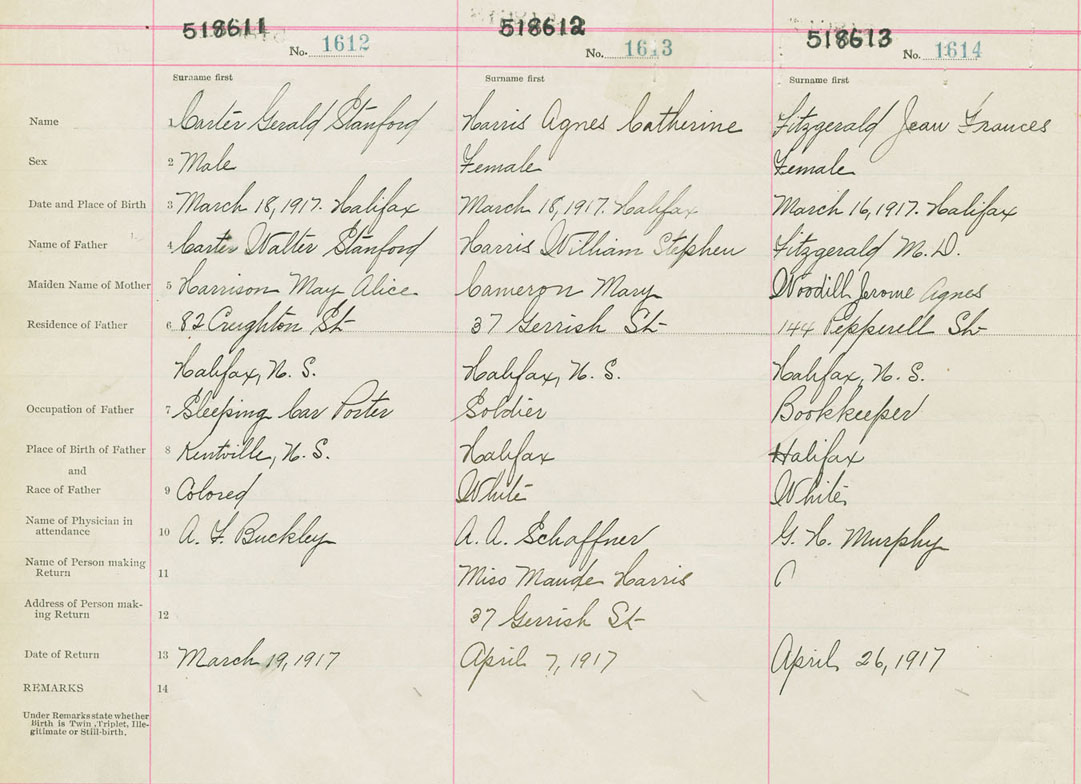 518611 518612 518613
No. 1612 No. 1613 No. 1614
Surname first Surname first Surname first
Name 1 Carter Gerald Stanford Harris Agnes Catherine Fitzgerald Jean Frances
Sex 2 Male Female Female
Date and Place of Birth 3 March 18, 1917. Halifax March 18, 1917. Halifax March 16, 1917. Halifax
Name of Father 4 Carter Walter Stanford Harris William Stephen Fitzgerald M. D.
Maiden Name of Mother 5 Harrison May Alice Cameron Mary Woodill Jerome Agnes
Residence of Father 6 82 Creighton St 37 Gerrish St 144 Pepperell St
Halifax, N. S. Halifax, N. S. Halifax, N. S.
Occupation of Father 7 Sleeping Car Porter Soldier Bookkeeper
Place of Birth of Father 8 Kentville, N. S. Halifax Halifax
and
Race of Father 9 Colored White White
Name of Physician in
attendance 10 A. F. Buckley A. A. Schaffner G. H. Murphy
Name of Person making
Return 11 Miss Maude Harris
Address of Person mak-
ing Return 12 37 Gerrish St
Date of Return 13 March 19, 1917 April 7, 1917 April 26, 1917
REMARKS 14
Under Remarks state whether
Birth is Twin, Triplet, Ille-
gitimate or Still-birth.